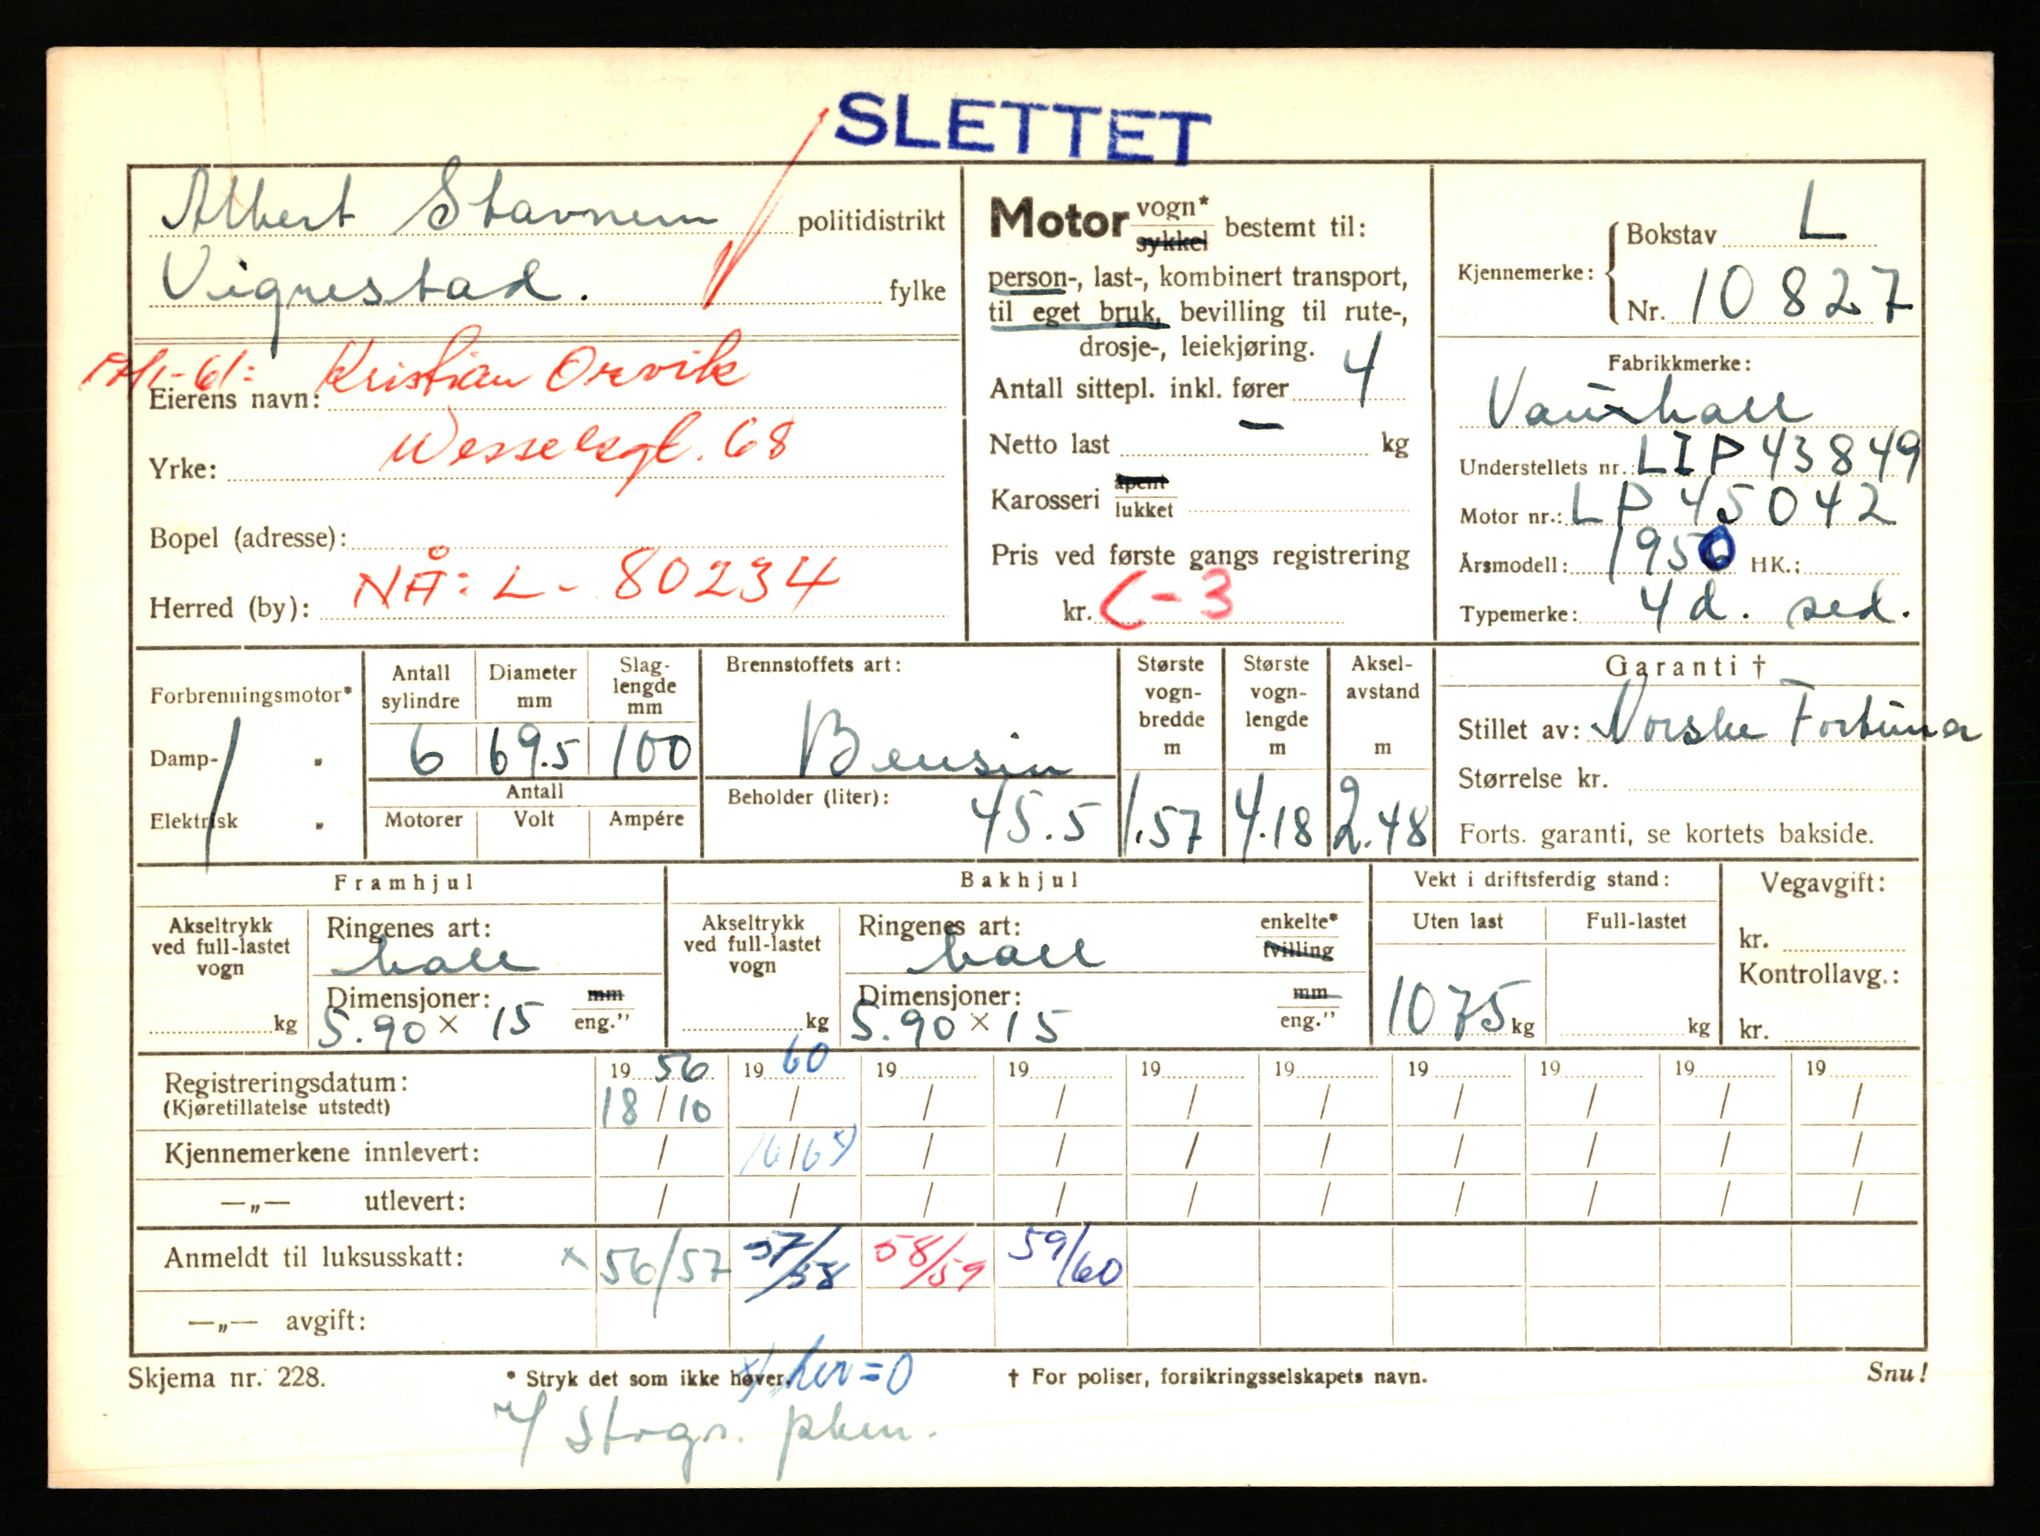 SLETTET
Albert Stavnem politidistrikt
Vignestad. fylke
17/1-61: Kristian Orvik
Eierens navn:
Wesselsgt. 68
Yrke:
Bopel (adresse):
Herred (by): NÅ: L - 80234
Motor vogn* sykkel bestemt til:
person-, last-, kombinert transport,
til eget bruk, bevilling til rute-,
drosje-, leiekjøring.
Antall sittepl. inkl. fører 4
Netto last — kg
Karosseri åpent lukket
Pris ved første gangs registrering
kr. C-3
Kjennemerke: Bokstav L
Nr. 10827
Fabrikkmerke:
Vauxhall
Understellets nr.: LIP 43849
Motor nr.: LP 45042
Årsmodell: 1950 HK.:
Typemerke: 4 d. sed.
Forbrenningsmotor*
Damp- "
Elektrisk "
Antall sylindre Diameter mm Slag-lengde mm
6 69.5 100
Antall
Motorer Volt Ampére
Brennstoffets art:
Bensin
Beholder (liter): 45.5
Største vogn-bredde m Største vogn-lengde m Aksel-avstand m
1.57 4.18 2.48
Garanti †
Stillet av: Norske Fortuna
Størrelse kr.
Forts. garanti, se kortets bakside.
Framhjul
Akseltrykk ved full-lastet vogn
kg
Ringenes art:
ball
Dimensjoner: mm
5.90 × 15 eng."
Bakhjul
Akseltrykk ved full-lastet vogn
kg
Ringenes art: enkelte*
ball tvilling
Dimensjoner: mm
5.90 × 15 eng."
Vekt i driftsferdig stand:
Uten last Full-lastet
1075 kg kg
Vegavgift:
kr.
Kontrollavg.:
kr.
Registreringsdatum: 19 56 19 60 19 19 19 19 19 19 19 19
(Kjøretillatelse utstedt) 18/10 / / / / / / / / /
Kjennemerkene innlevert: / / / / / / / / /
—„— utlevert: / / / / / / / / / /
Anmeldt til luksusskatt: x 56/57 57/58 58/59 59/60
—„— avgift:
Skjema nr. 228. * Stryk det som ikke høver. † For poliser, forsikringsselskapets navn. Snu!